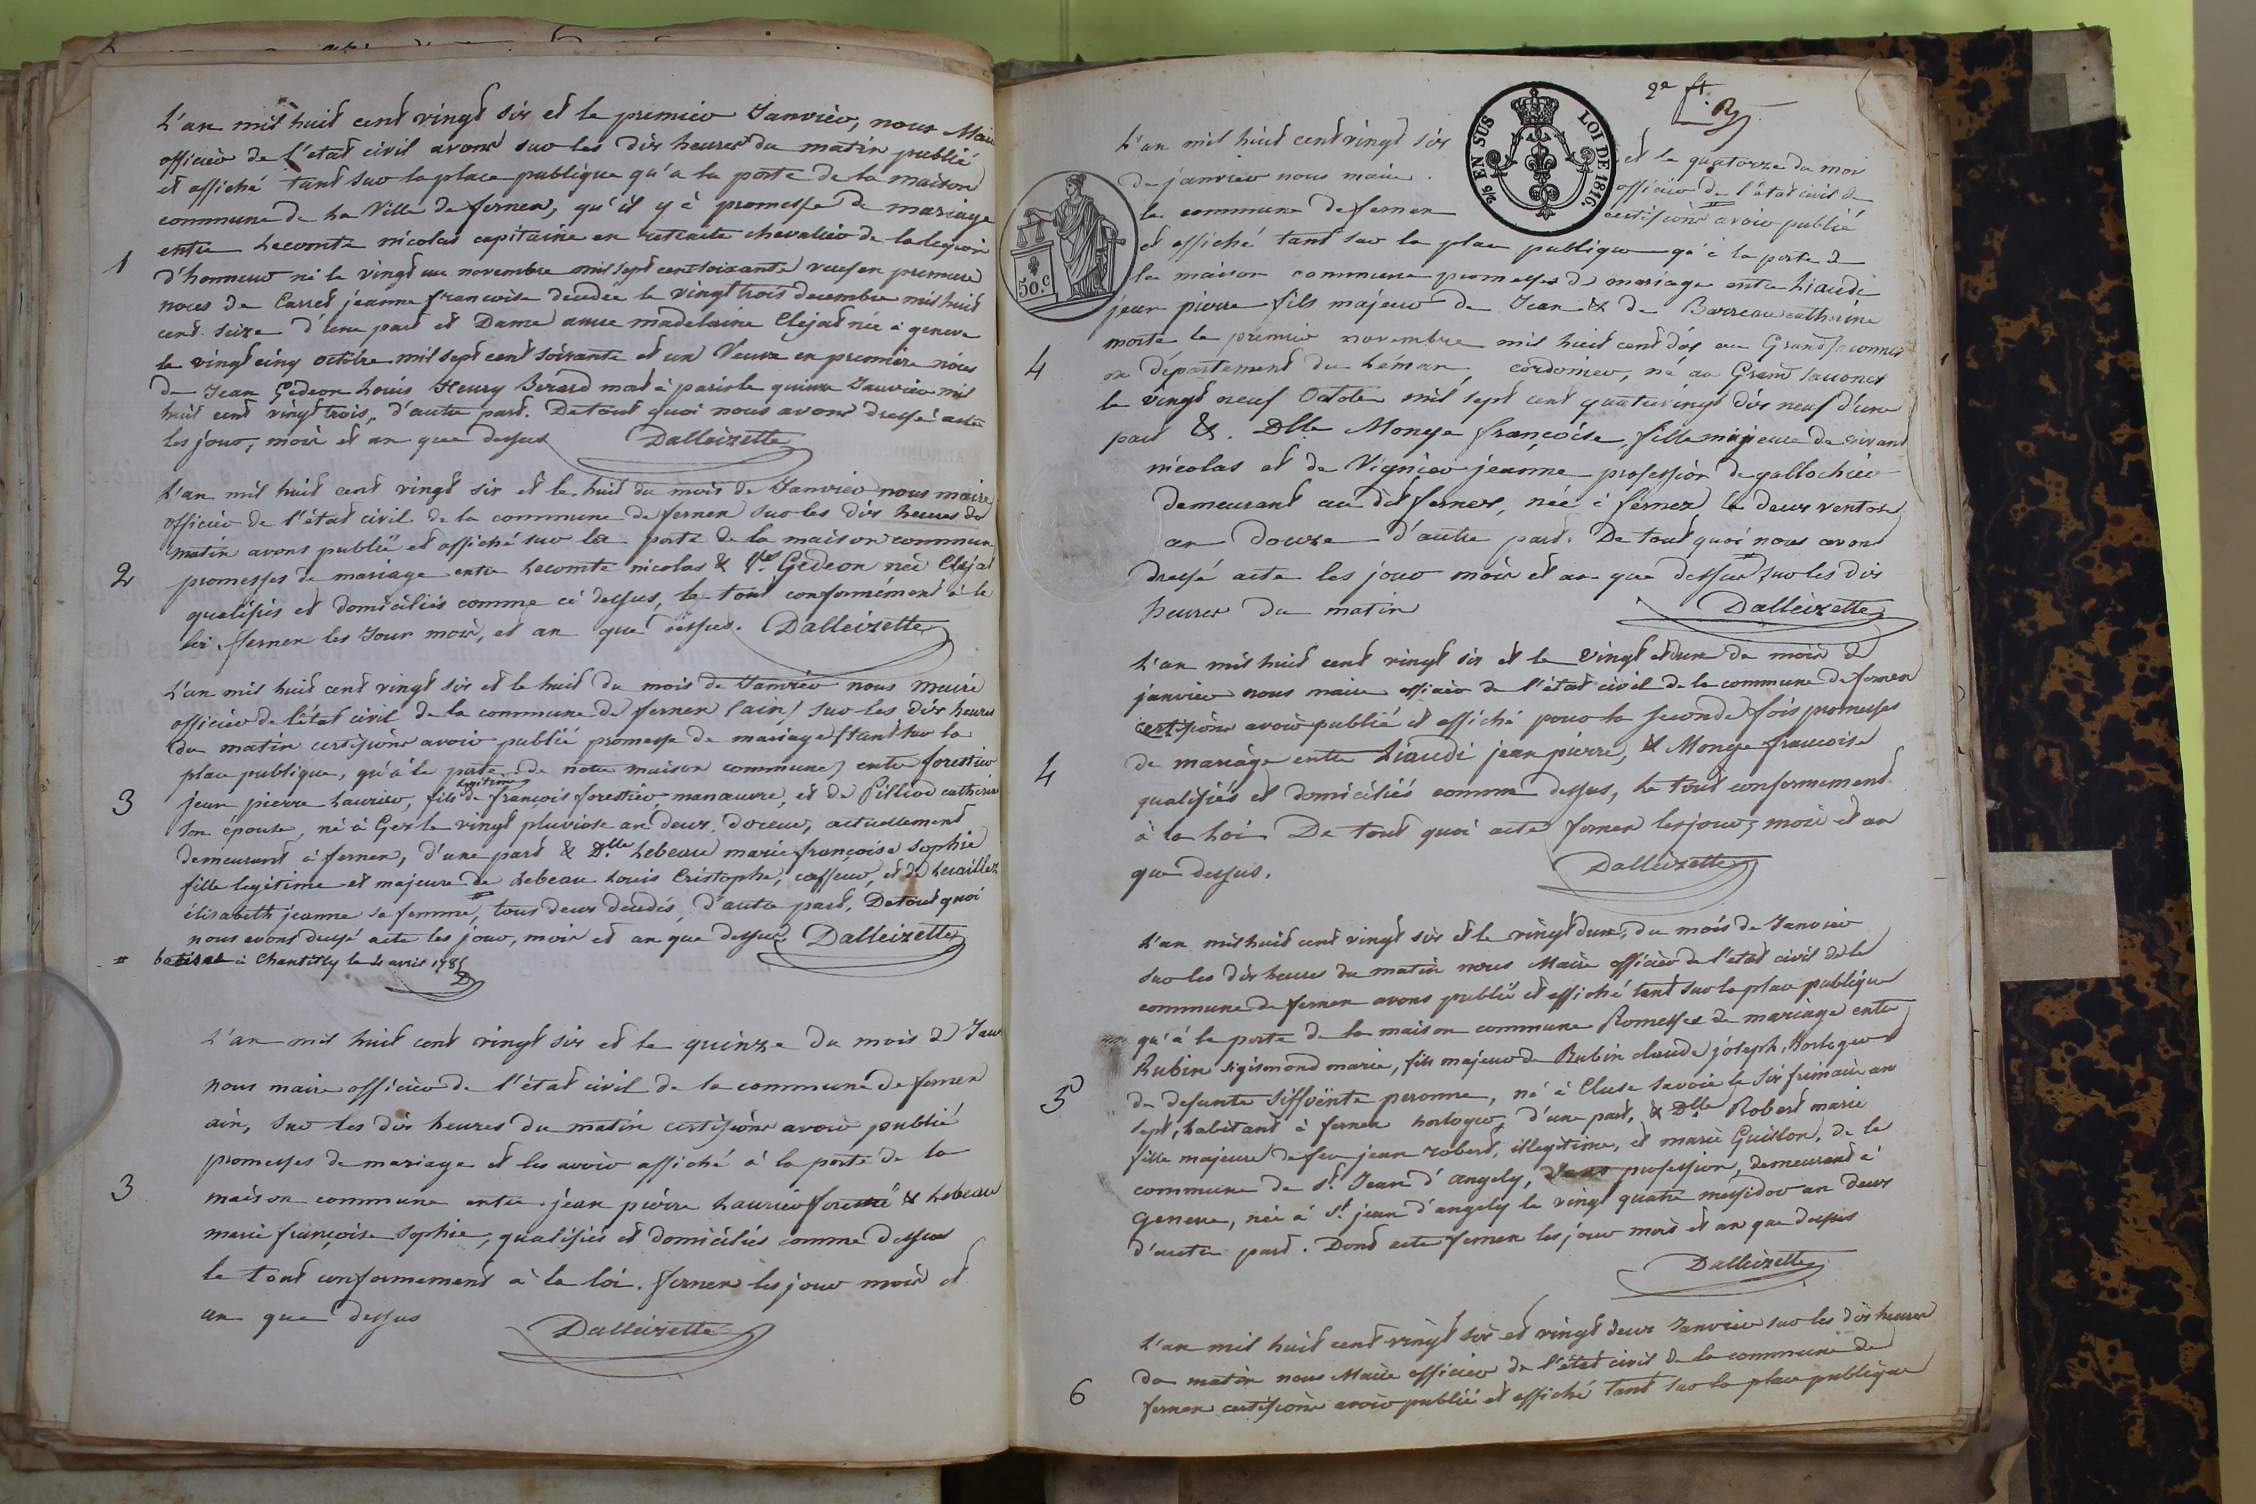 L'an mil huit cent vingt six et le premier Janvier, nous Maire
officier de l'etat civil avons sur les dix heures du matin publié
et affiché tant sur la place publique qu'a la porte de la maison
commune de La Ville de ferney, qu'il y à promesse de mariage
entre Lecomte nicolas capitaine en retraite chevalier de la legion
1
d'honneur né le vingt un novembre mil sept cent soixante veuf en premiere
noces de Carret jeanne francoise décédée le vingt trois decembre mil huit
cent seize d'une part et Dame anne madelaine Clejat née à geneve
le vingt cinq octobre mil sept cent soixante et un Veuve en première nôces
de Jean Gédeon Louis Henry Berard mort à paris le quinze Janvier mil
huit cent vingt trois, d'autre part. De tout quoi nous avons dressé acte
les jour, mois et an que dessus Dalleizette
L'an mil huit cent vingt six et le huit du mois de Janvier nous maire
officier de l'état civil de la commune de ferney sur les dix heures du
matin avons publié et affiché sur la porte de la maison commune
2
promesses de mariage entre Lecomte nicolas & Ve. Gédeon née Clejat
qualifiés et domiciliés comme ci dessus, le tout conformément à la
loi. ferney les Jour mois, et an que dessus. Dalleizette
L'an mil huit cent vingt six et le huit du mois de Janvier nous maire
officier de l'état civil de la commune de ferney (ain) sur les dix heures
du matin certifions avoir publié promesse de mariage (tant sur la
place publique, qu'à la porte de notre maison commune) entre forestier
légitime
3
jean pierre Laurier, fils de françois forestier manœuvre, et de Pilliod catherine
son épouse, né à Gex le vingt pluviose an deux, doreur, actuellement
demeurant à ferney, d'une part & Dlle Lebeau marie françoise sophie
fille legitime et majeure de Lebeau Louis Cristophe, coeffeur, et de
élisabeth jeanne sa femme, tous deux decedés, d'autre part. De tout quoi
nous avons dressé acte les jour, mois et an que dessus. Dalleizette
= à Chantilly le 4 avril 1785
D
L'an mil huit cent vingt six et le quinze du mois de Janv
nous maire officier de l'état civil de la commune de ferney
ain, sur les dix heures du matin certifions avoir publié
promesses de mariage et les avoir affiché à la porte de la
3
maison commune entre jean pierre Laurier & Lebeau
marie françoise sophie, qualifiés et domiciliés comme dessus
le tout conformement à la loi. ferney les jour mois et
an que dessus
Dalleizette
2e ft.
2/5 EN SUS LOI DE 1816.
50 c
L'an mil huit cent vingt six et le quatorze du mois
de janvier nous maire officier de l'état civil de
la commune de ferney certifions avoir publié
et affiché tant sur la place publique qu'à la porte de
la maison commune promesses de mariage entre Liaudi
jean pierre fils majeur de Jean & de Barreau catherine
morte le premier novembre mil huit cent dix au Grand saconnex
4
département du Léman, cordonier, né au Grand saconex
le vingt neuf Octobre mil sept cent quatrevingt dix neuf d'une
part &. Dlle Monge françoise, fille majeure de vivant
nicolas et de Vignier jeanne profession de gallochier
demeurant au dit ferney, née à ferney le deux ventose
an douze d'autre part. De tout quoi nous avons
dressé acte les jour mois et an que dessus sur les dix
heures du matin Dalleizette
L'an mil huit cent vingt six et le vingt et du mois de
janvier nous maire officier de l'état civil de la commune de ferney
certifions avoir publié et affiché pour la seconde fois promesses
4
de mariage entre Liaudi jean pierre, & Monge francoise
qualifiés et domiciliés comme dessus, le tout conformement
à la loi. De tout quoi acte ferney les jour, mois et an
que dessus. Dalleizette
L'an mil huit cent vingt six et le vingt deux, du mois de Janvier
sur les dix heures du matin nous Maire officier de l'etat civil de la
commune de ferney avons publié et affiché tant sur la place publique
qu'à la porte de la maison commune Promesses de mariage entre
Rubin sigismond marie, fils majeur de Rubin claude joseph, Horloger &
5
de defunte peronne, né à Cluse savoie le six frimaire an
sept, habitant à ferney horloger, d'une part, & Dlle Robert marie
fille majeure de feu jean robert, illegitime, et marie Guillon, de la
commune de St. Jean d'angely, sans profession, demeurant à
Geneve, née à St. jean d'angely le vingt quatre messidor an deux
d'autre part. Dont acte ferney les jour mois et an que dessus
Dalleizette
L'an mil huit cent vingt six et vingt deux Janvier sur les dix heures
du matin nous Maire officier de l'état civil de la commune de
6
ferney certifions avoir publié et affiché tant sur la place publique